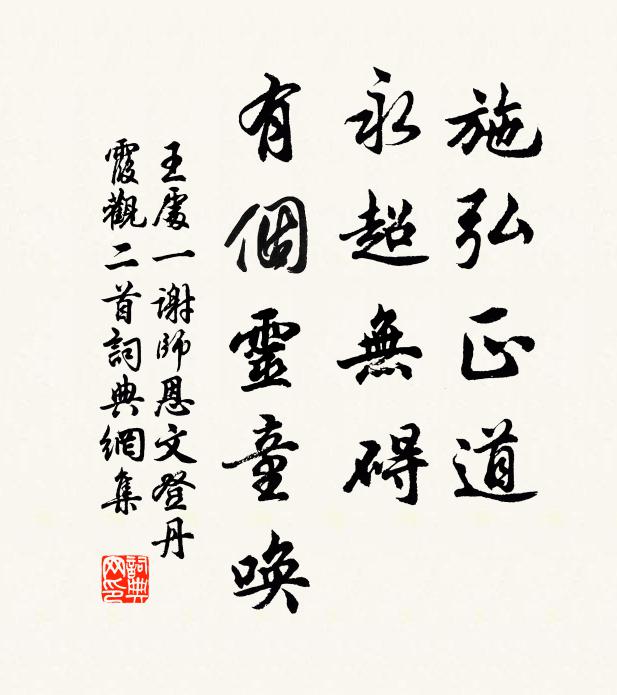 施弘正道
永超無碍
有個靈童喚
王處一謝師恩文登丹
霞觀二首詞典網集
詞典
网印